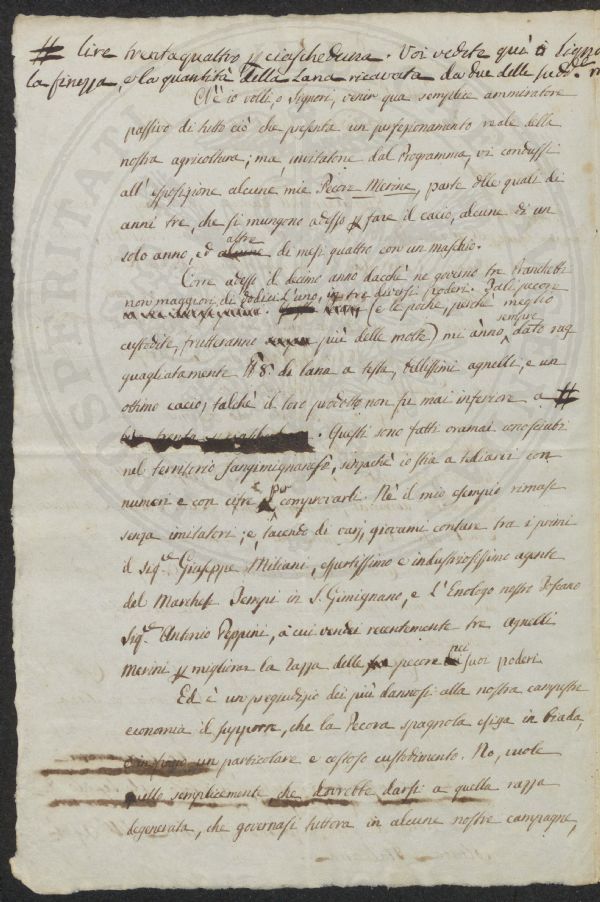 # lire trentaquattro p ciascheduna. Voi vedete quì
la finezza, e la quantità della Lana ricavata da due delle sudd.
Nè io volli, o Signori, venir qua semplice ammiratore
passivo di tutto ciò che presenta un perfezionamento reale della
nostra agricoltura; ma, invitatone dal Programma, vi condussi
all'esposizione alcune mie Pecore Merine, parte delle quali di
anni tre, che si mungono adesso p fare il cacio, alcune di un
solo anno, ed altre di mesi quattro con un maschio.
Corre adesso il decimo anno dacchè ne governo tre branchetti
non maggiori di dodici l'uno, in tre diversi poderi. Tali pecore
(e le poche, perchè meglio
custodite, frutteranno più delle molte) mi ànno sempre dato rag
guagliatamente ℔ 8. di lana a testa, bellissimi agnelli, e un
ottimo cacio; talchè il loro prodotto non fu mai inferiore a #
. Questi sono fatti oramai conosciuti
nel territorio Sangimignanese, senzachè io stia a tediarvi con
numeri e con cifre p comprovarli. Nè il mio esempio rimase
senza imitatori; e, tacendo di varj, giovami contare tra i primi
il Sig.r Giuseppe Miliani, espertissimo e industriosissimo agente
del Marchese Tempi in S. Gimignano, e l'Enologo nostro Toscano
Sig.r Antonio Peppini, a cui vendei recentemente tre agnelli
Merini p migliorar la razza delle pecore nei suoi poderi.
Ed è un pregiudizio dei più dannosi alla nostra campestre
economia il supporre, che la Pecora spagnola esiga in Orada,
un particolare e costoso custodimento. No, vuole
quello semplicemente che dovrebbe darsi a quella razza
degenerata, che governasi tuttora in alcune nostre campagne,